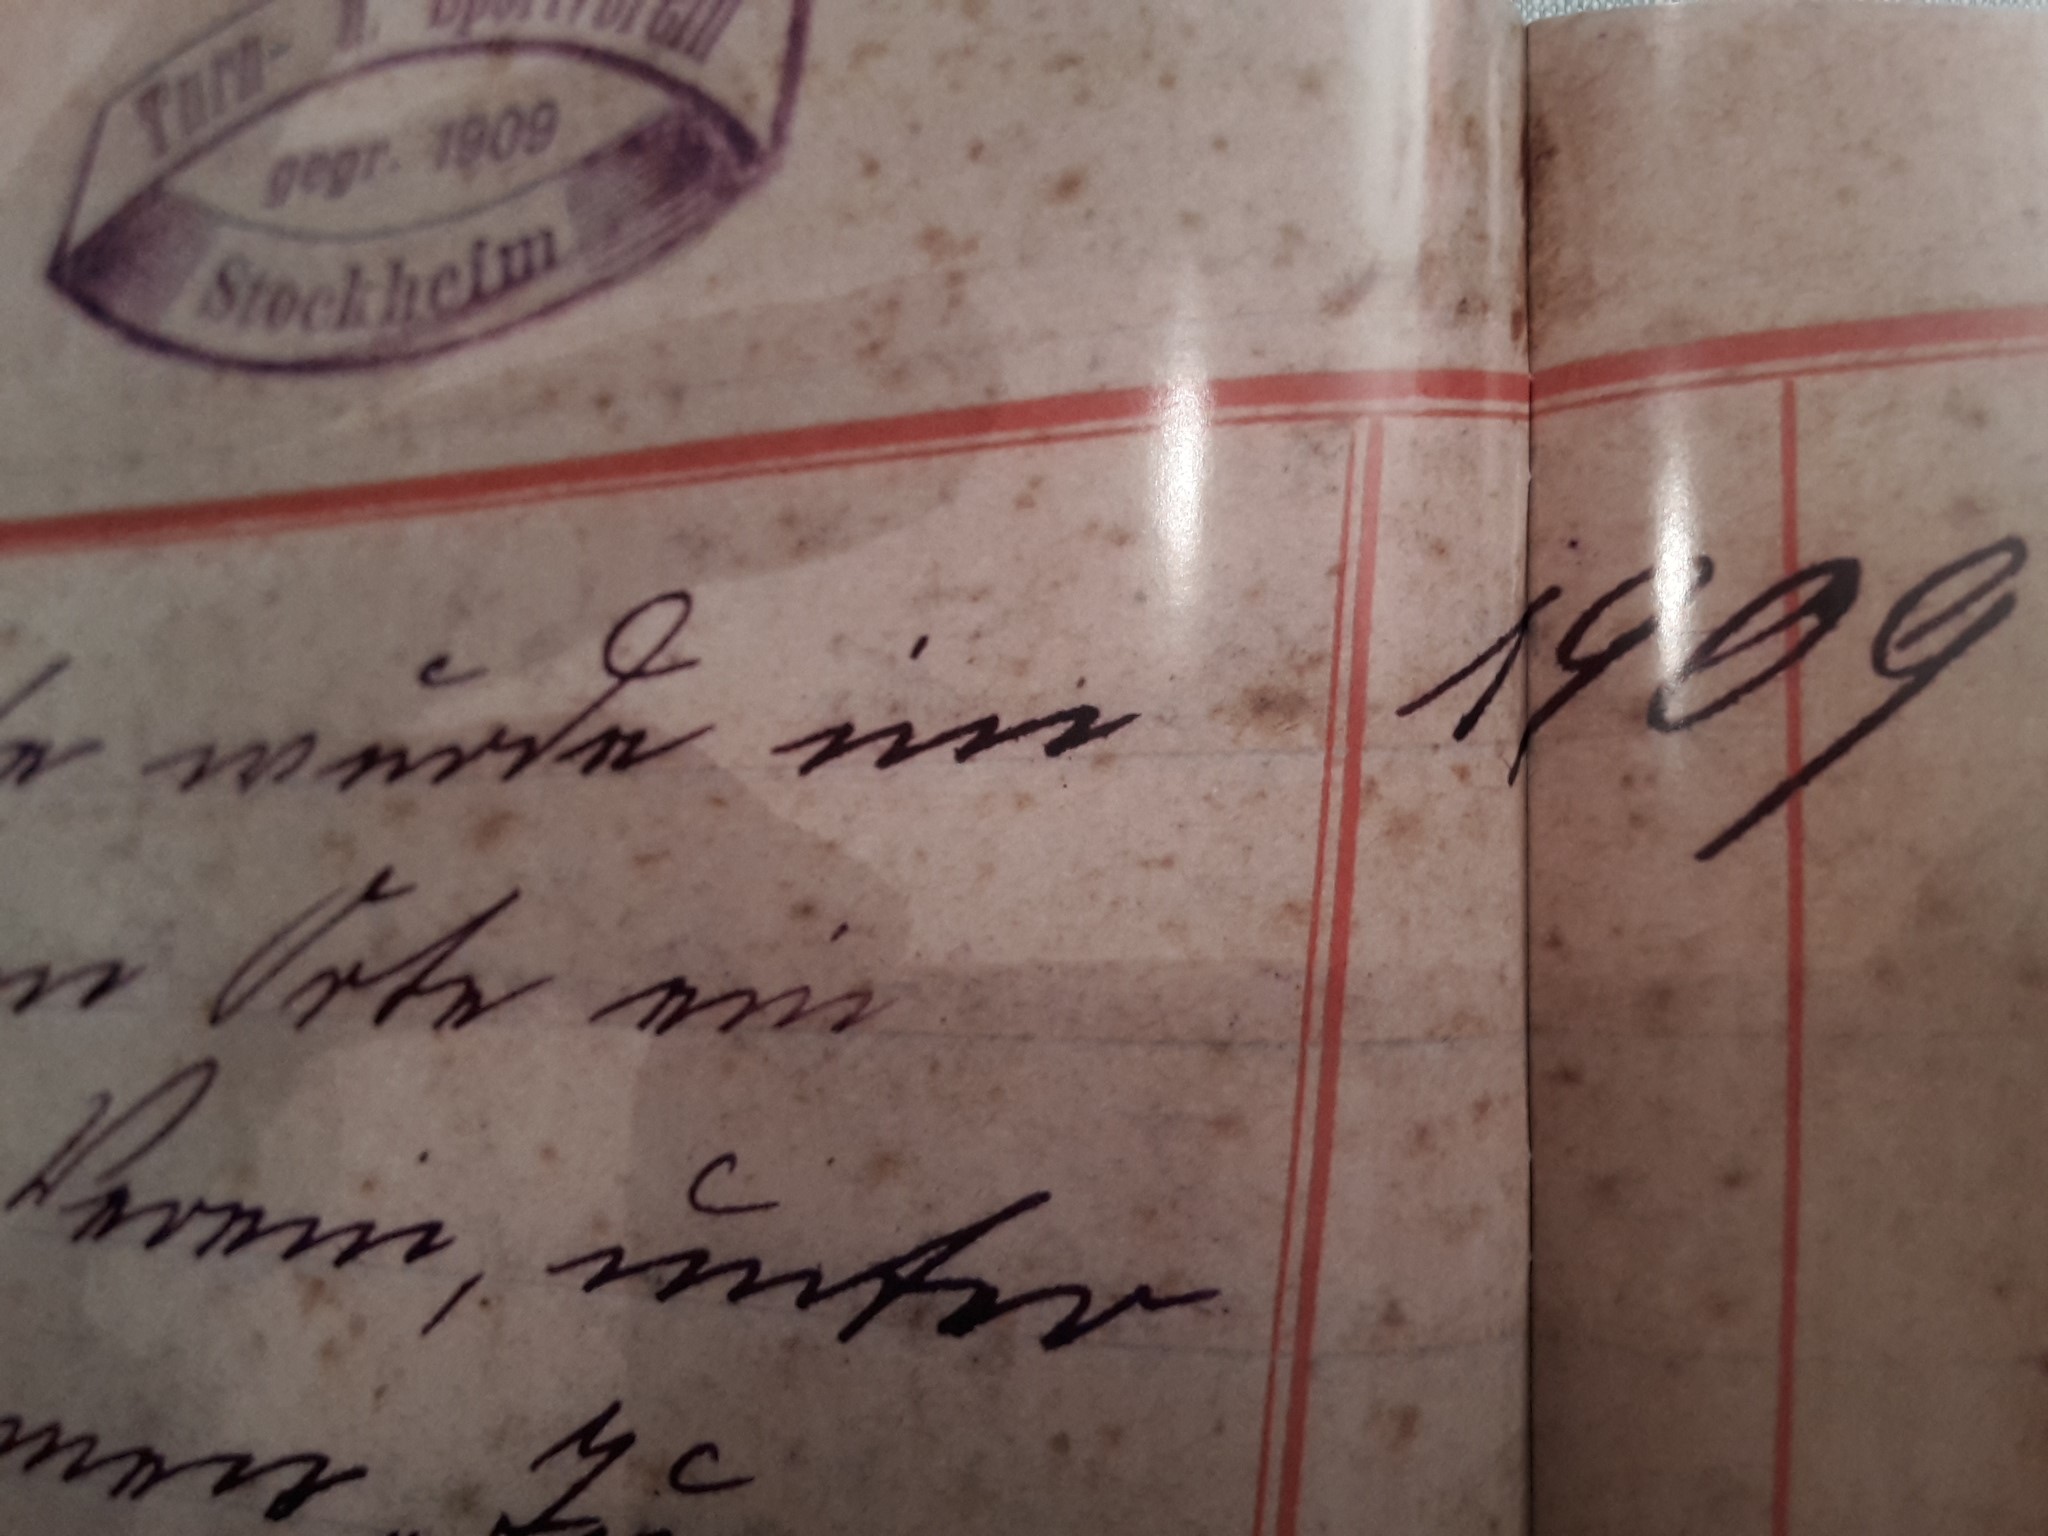 Turn- u. Sportverein
gegr. 1909
Stockheim
wurde im 1909
Orte ein
Verein, unter